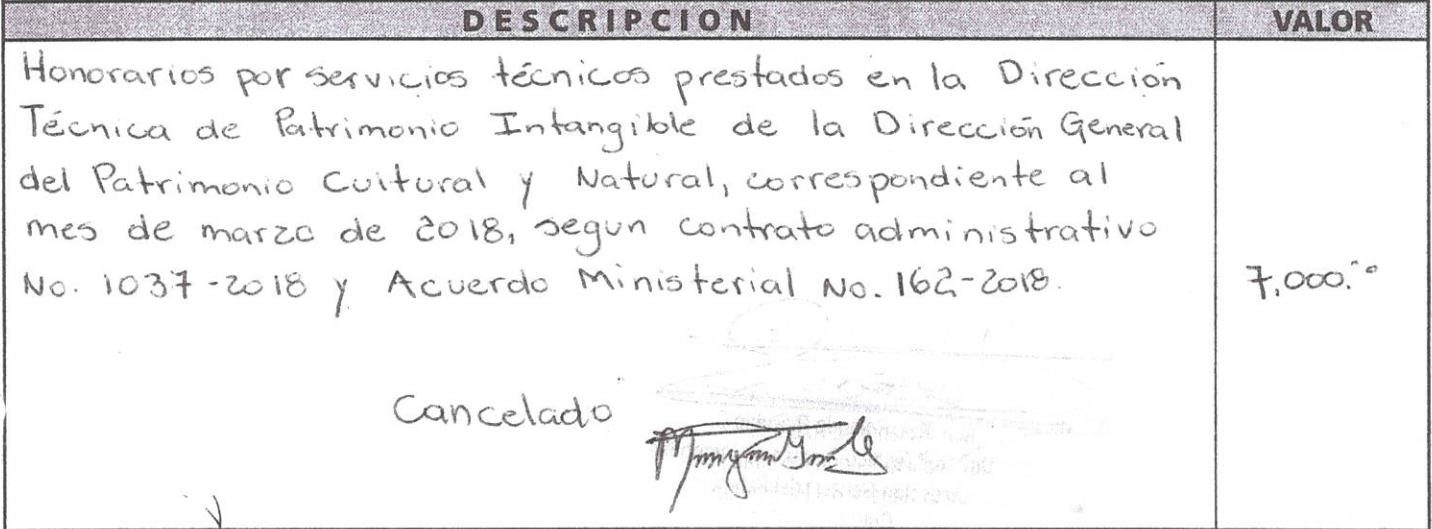 DESCRIPCION VALOR
Honorarios por servicios técnicos prestados en la Dirección
Técnica de Patrimonio Intangible de la Dirección General
del Patrimonio Cultural y Natural, correspondiente al
mes de marzo de 2018, segun contrato administrativo
No. 1037-2018 y Acuerdo Ministerial No. 162-2018. 7,000.00
Cancelado